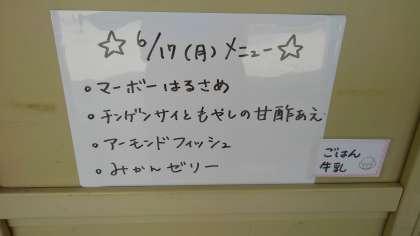 ☆6/17(月)メニュー☆
○マーボーはるさめ
○チンゲンサイともやしの甘酢あえ
○アーモンドフィッシュ
○みかんゼリー
ごはん
牛乳